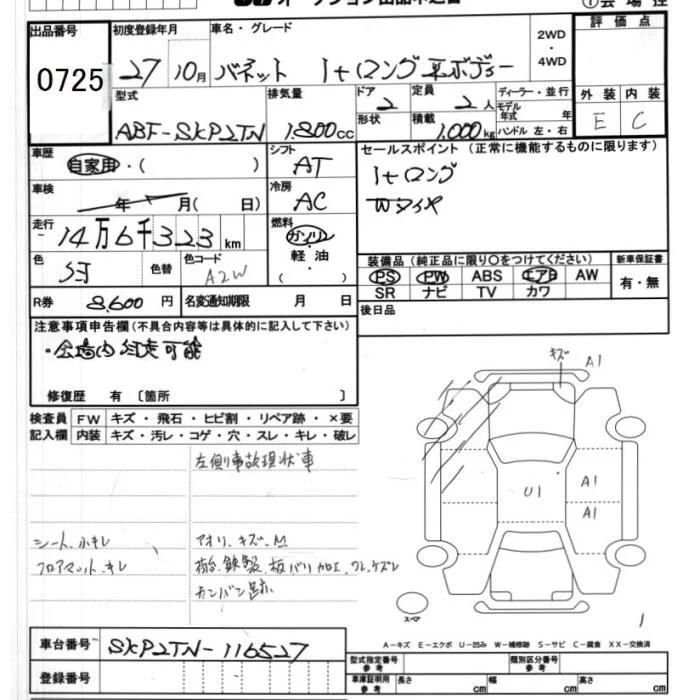 オークション出品申込書
①会場控
出品番号 初度登録年月 車名・グレード 2WD・4WD 評価点
0725 27年 10月 バネット 1tロング 平ボデー
型式 排気量 ドア 定員 ディーラー・並行 外装 内装
ABF-SKP2TN 1.800cc 2 2人 モデル年式 年 E C
形状 積載 1,000kg ハンドル 左・右
車歴 シフト セールスポイント (正常に機能するものに限ります)
自家用・( ) AT 1tロング
車検 冷房 Wタイヤ
年 月( 日) AC
走行 燃料
14万6千323km ガソリン・軽油・( )
色 色替 色コード 装備品(純正品に限り○をつけてください) 新車保証書
A2W PS PW ABS エアB AW 有・無
SR ナビ TV カワ
R券 8,600円 名変通知期限 月 日 後日品
注意事項申告欄(不具合内容等は具体的に記入して下さい)
・会場内自走可能
修復歴 有 〔箇所 〕
検査員 FW キズ・飛石・ヒビ割・リペア跡・×要
記入欄 内装 キズ・汚レ・コゲ・穴・スレ・キレ・破レ
キズ A1
左側事故現状車
U1 A1
A1
シート、小キレ アオリ、キズ、M
フロアマット、キレ 荷台、鉄製、板バリ加工、ワレ、ケズレ
カンバン跡
スペア
1
A-キズ E-エクボ U-凹み W-補修跡 S-サビ C-腐食 XX-交換済
車台番号 SKP2TN-116527
登録番号 型式指定番号 参考 類別区分番号 参考
車庫証明用 参考 長さ cm 幅 cm 高さ cm